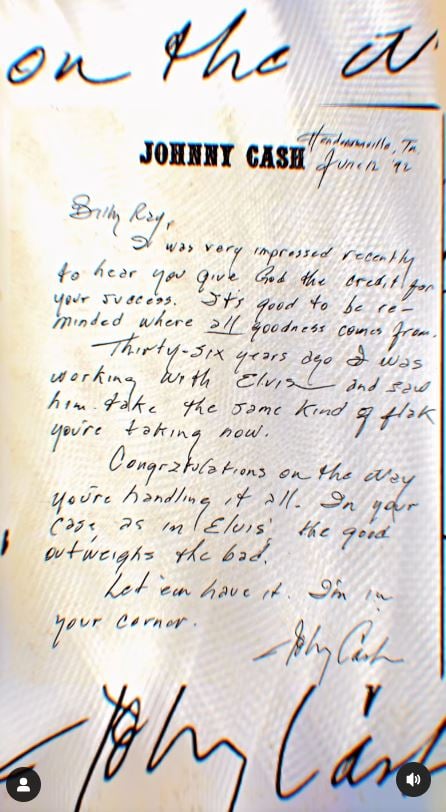 on the w
JOHNNY CASH
Hendersonville, Tn
June 12 '92
Billy Ray,
I was very impressed recently
to hear you give God the credit for
your success. It's good to be re-
minded where all goodness comes from.
Thirty-six years ago I was
working with Elvis and saw
him take the same kind of flak
you're taking now.
Congratulations on the way
you're handling it all. In your
case, as in Elvis', the good
outweighs the bad.
Let 'em have it. I'm in
your corner.
Johnny Cash
Johnny Cash